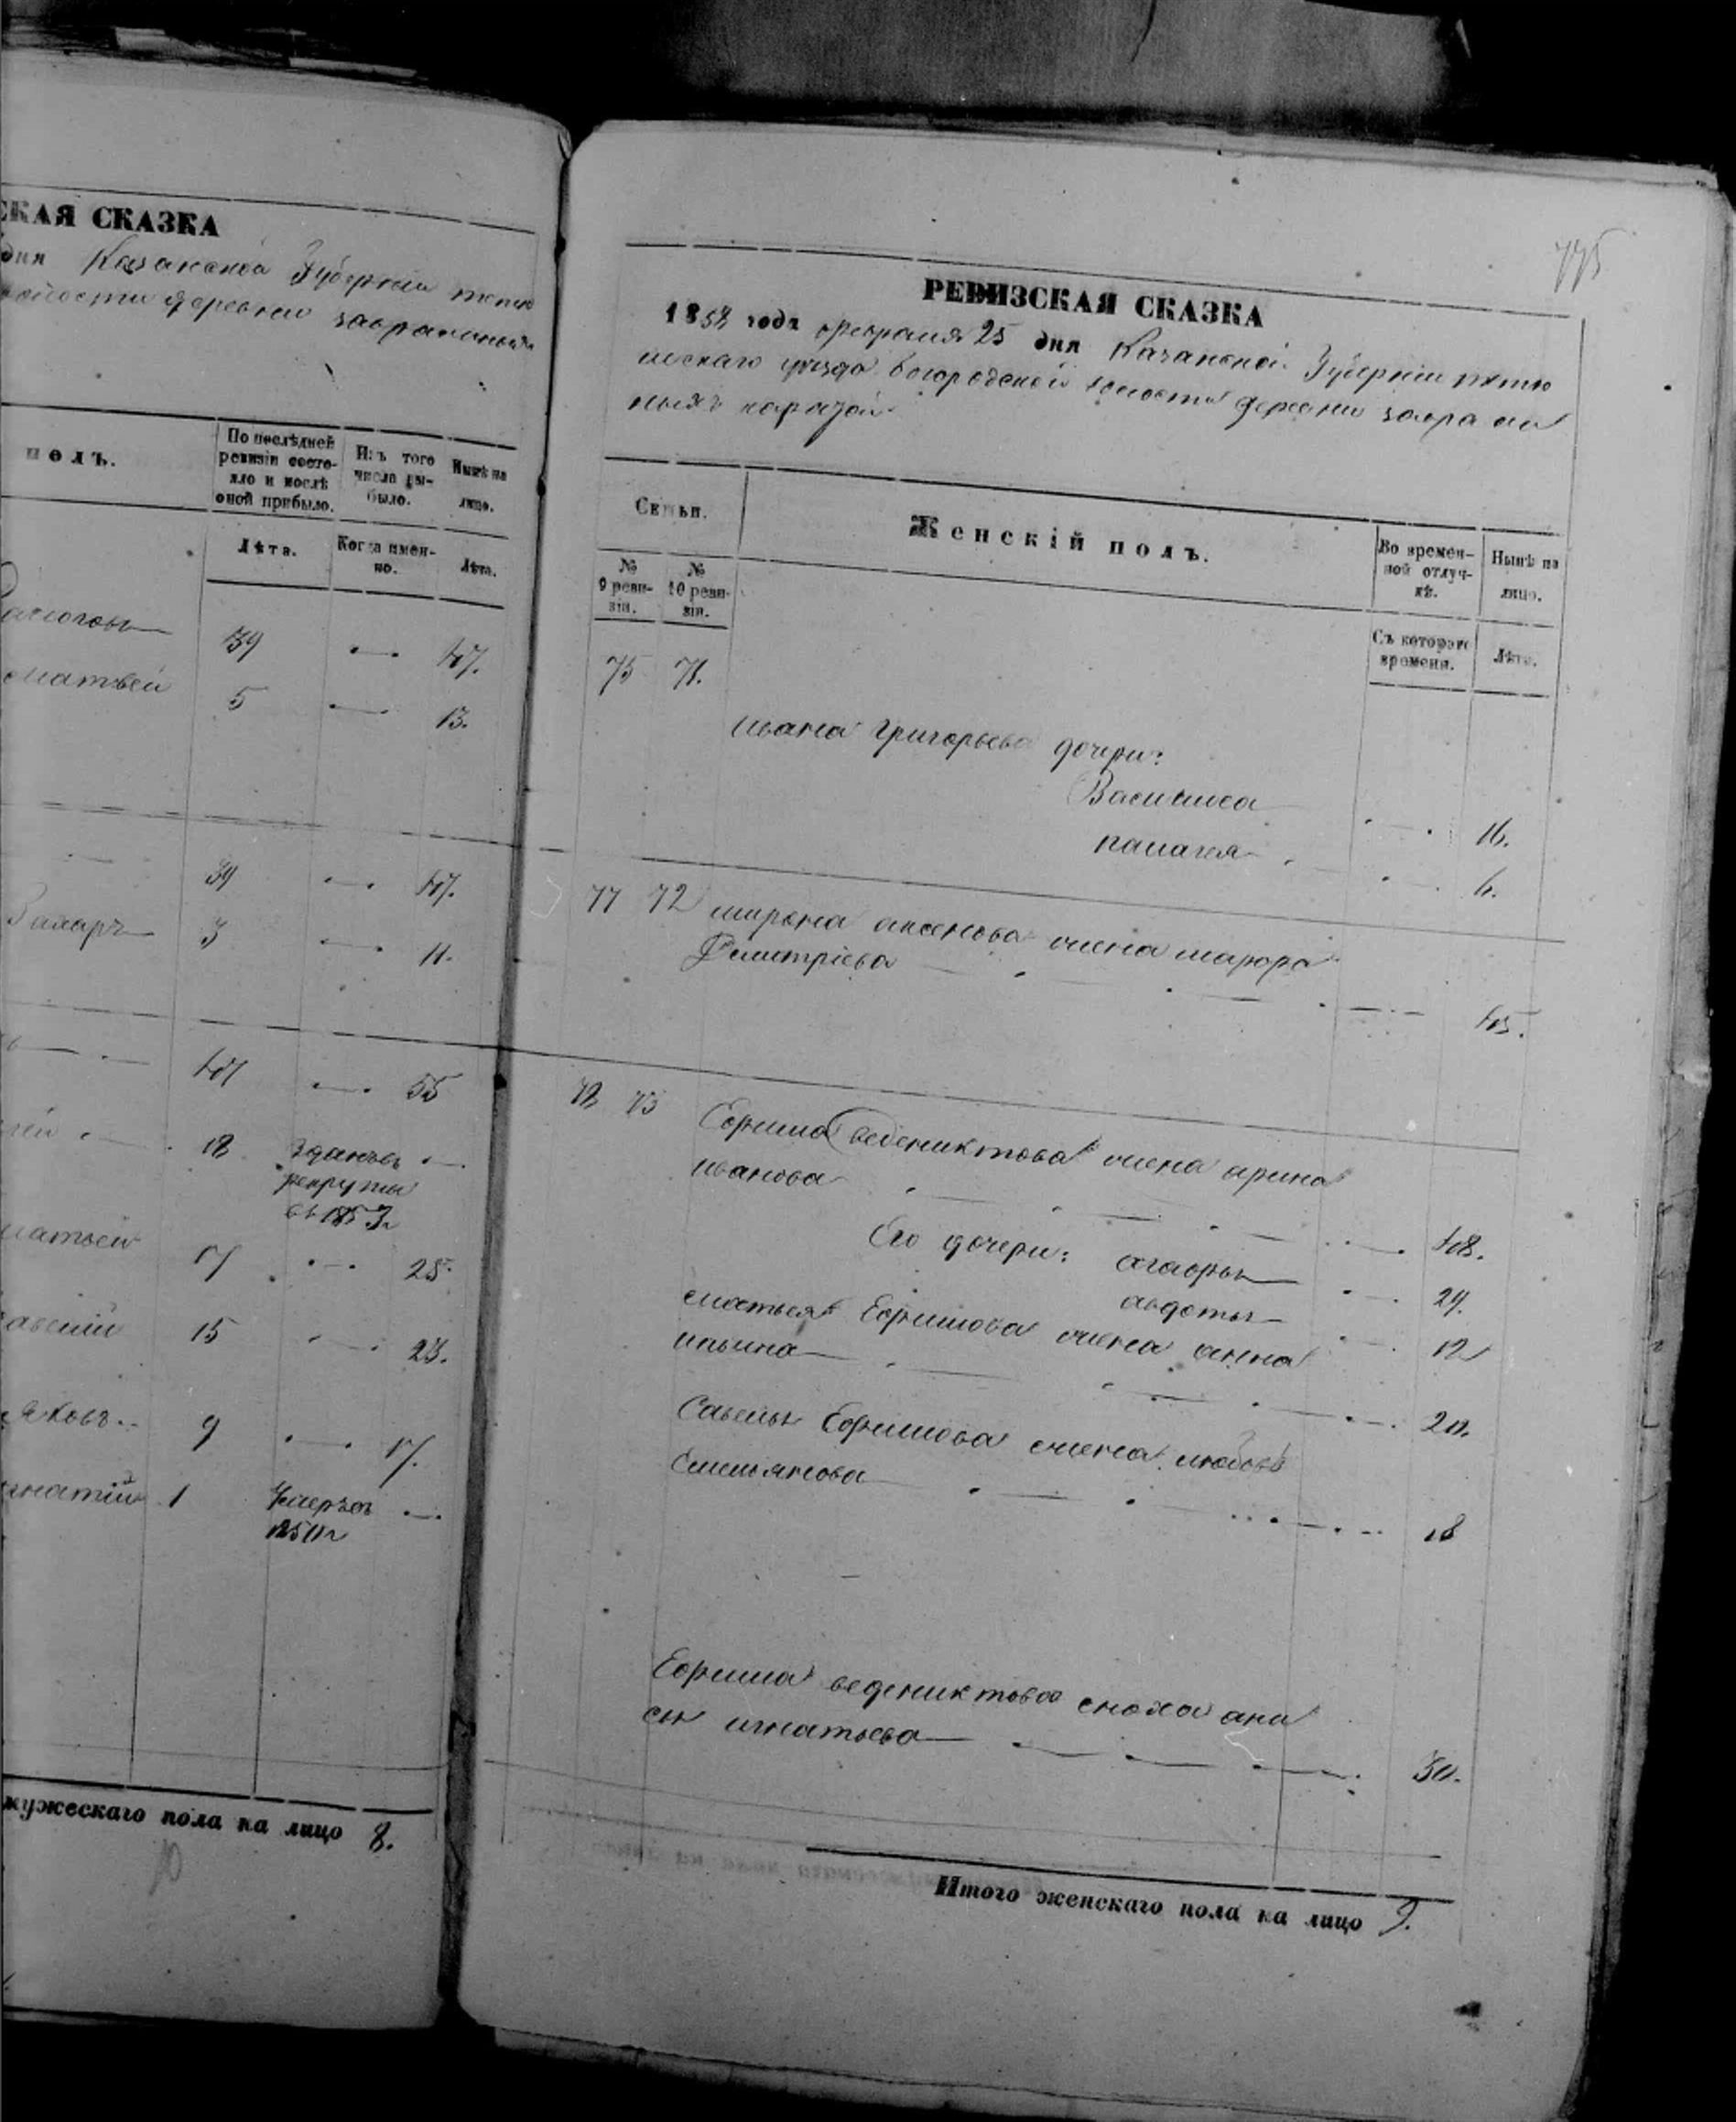 СКАЯ СКАЗКА
дня Казанской Губерніи тетю
волости деревни
полъ.
По послѣдней ревизіи состояло и послѣ оной прибыло.
Изъ того числа выбыло.
Нынѣ на лицо.
Лѣта.
Когда именно.
Лѣта.
39 47.
Матвей 5 13.
39 47.
Захаръ 3 11.
47 55
18 Зданъ въ
рекруты
въ 1853 г
матвей 17 25.
15 23.
Яковъ 9 17.
игнатий 1 Умеръ въ
1850 г
мужескаго пола на лицо 8.
775
РЕВИЗСКАЯ СКАЗКА
1858 года февраля 25 дня Казанской Губерніи тетю
шскаго уезда богородской волости деревни
ныхъ каратай
Семьи.
Женскій полъ.
Во временной отлучкѣ.
Нынѣ на лицо.
№ 9 ревизіи.
№ 10 ревизіи.
Съ котораго времени.
Лѣта.
75 71.
ивана Григорьева дочери:
Василиса 16.
палагея 6.
77 72 мирона аксенова жена марфа
Дмитріева 45.
72 73 Ефима ведениктова жена арина
иванова 48.
Его дочери: агафья 29.
авдотья 12
матвея Ефимова жена анна
ильина 20.
Савелья Ефимова жена любовь
Емельянова 18
Ефима ведениктова сноха ани
сья игнатьева 30.
Итого женскаго пола на лицо 9.